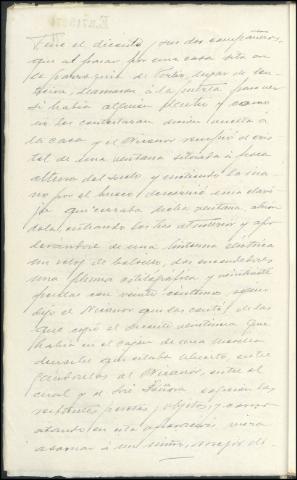 Tene el dicente y sus dos compañeros,
que al pasar por una casa sita en
la parroquia de Cortes, lugar de
llamaron á la puerta para ver
si había alguien dentro y como
no les contestaran dieron vuelta á
la casa y el Nicanor rompió el cris
tal de una ventana situada á poca
altura del suelo y metiendo la ma
no por el hueco descorrió una clavi
ja que cerraba dicha ventana, abrién
dola, entrando los tres al interior y apo
derándose de una linterna eléctrica
un reloj de bolsillo, dos encendedores
una pluma estilográfica y veintisiete
pesetas con veinte céntimos, según
dijo el Nicanor que las contó, de las
que cogió el dicente veintiuna que
había en el cajón de una mesilla
de noche que estaba abierto, entre
gándoselas al Nicanor, entre el
cual y el José cogieron las
restantes pesetas y objetos, y como
estando en esta operación viera
asomar á un niño, recogió de-